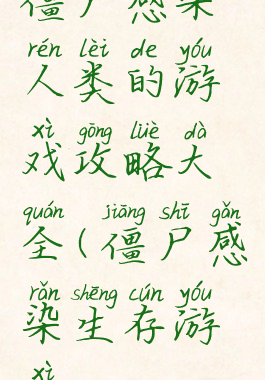 僵尸感染
rén lèi de yóu
人类的游
xì gōng lüè dà
戏攻略大
quán jiāng shī gǎn
全(僵尸感
rǎn shēng cún yóu
染生存游
xì